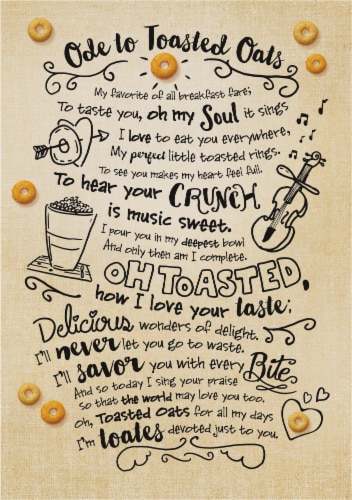 Ode to Toasted Oats
My favorite of all breakfast fare;
To taste you, oh my Soul it sings
I love to eat you everywhere,
My perfect little toasted rings.
To see you makes my heart feel full.
To hear your CRUNCH
is music sweet.
I pour you in my deepest bowl
And only then am I complete.
OH TOASTED,
how I love your taste;
Delicious wonders of delight.
I'll never let you go to waste.
I'll savor you with every Bite
And so today I sing your praise
so that the world may love you too.
Oh, Toasted Oats for all my days
I'm toates devoted just to you.